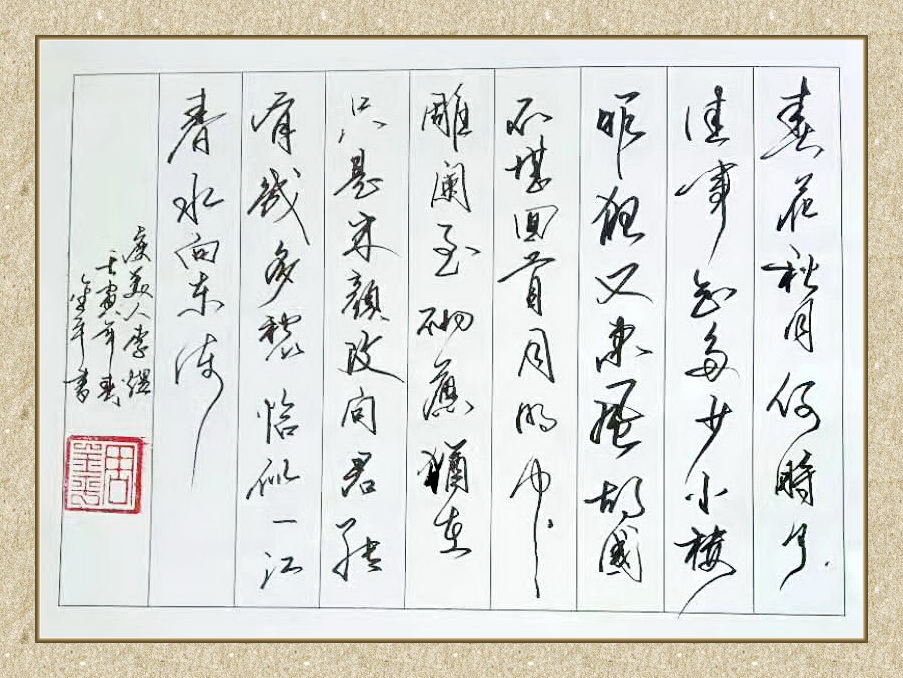 春花秋月何時了
往事知多少小樓
昨夜又東風故國
不堪回首月明中
雕闌玉砌應猶在
只是朱顏改問君能
有幾多愁恰似一江
春水向東流
虞美人李煜
壬寅年春
金平書